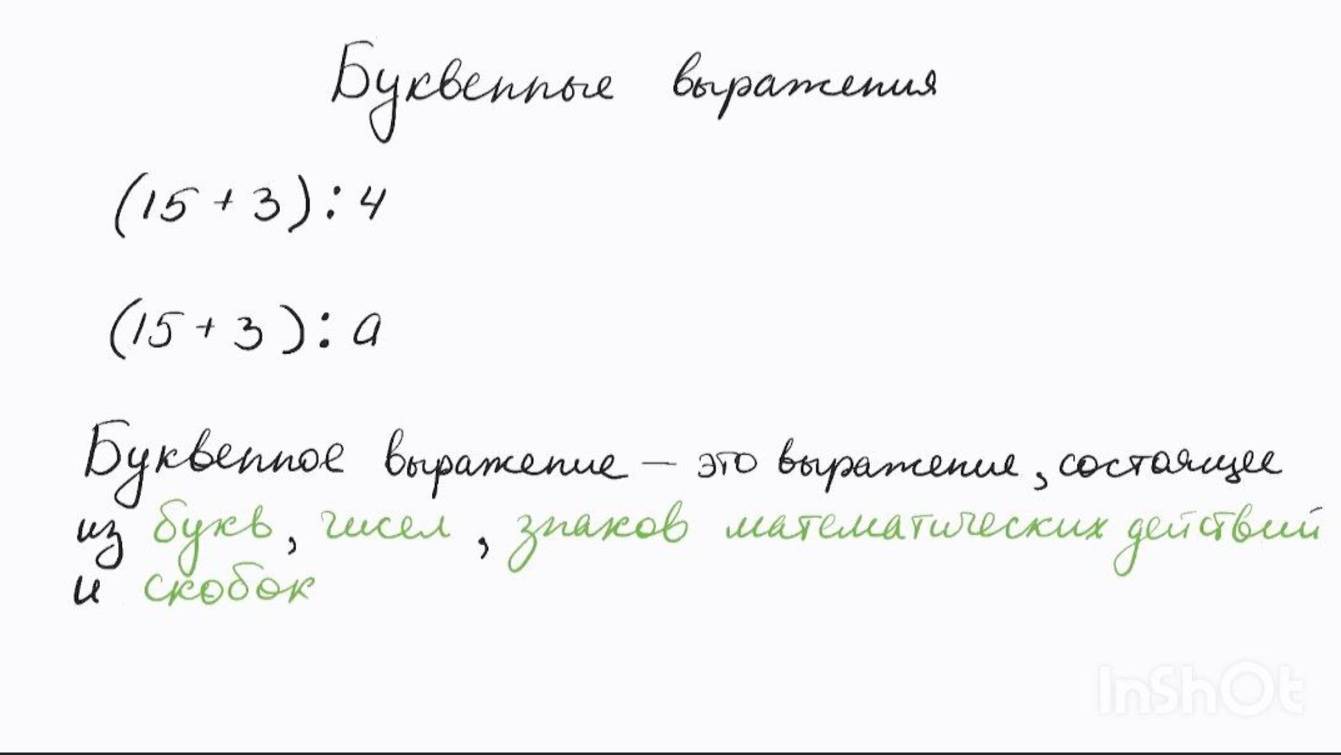 Буквенные выражения
(15 + 3) : 4
(15 + 3) : a
Буквенное выражение – это выражение, состоящее
из букв, чисел, знаков математических действий
и скобок
InShOt